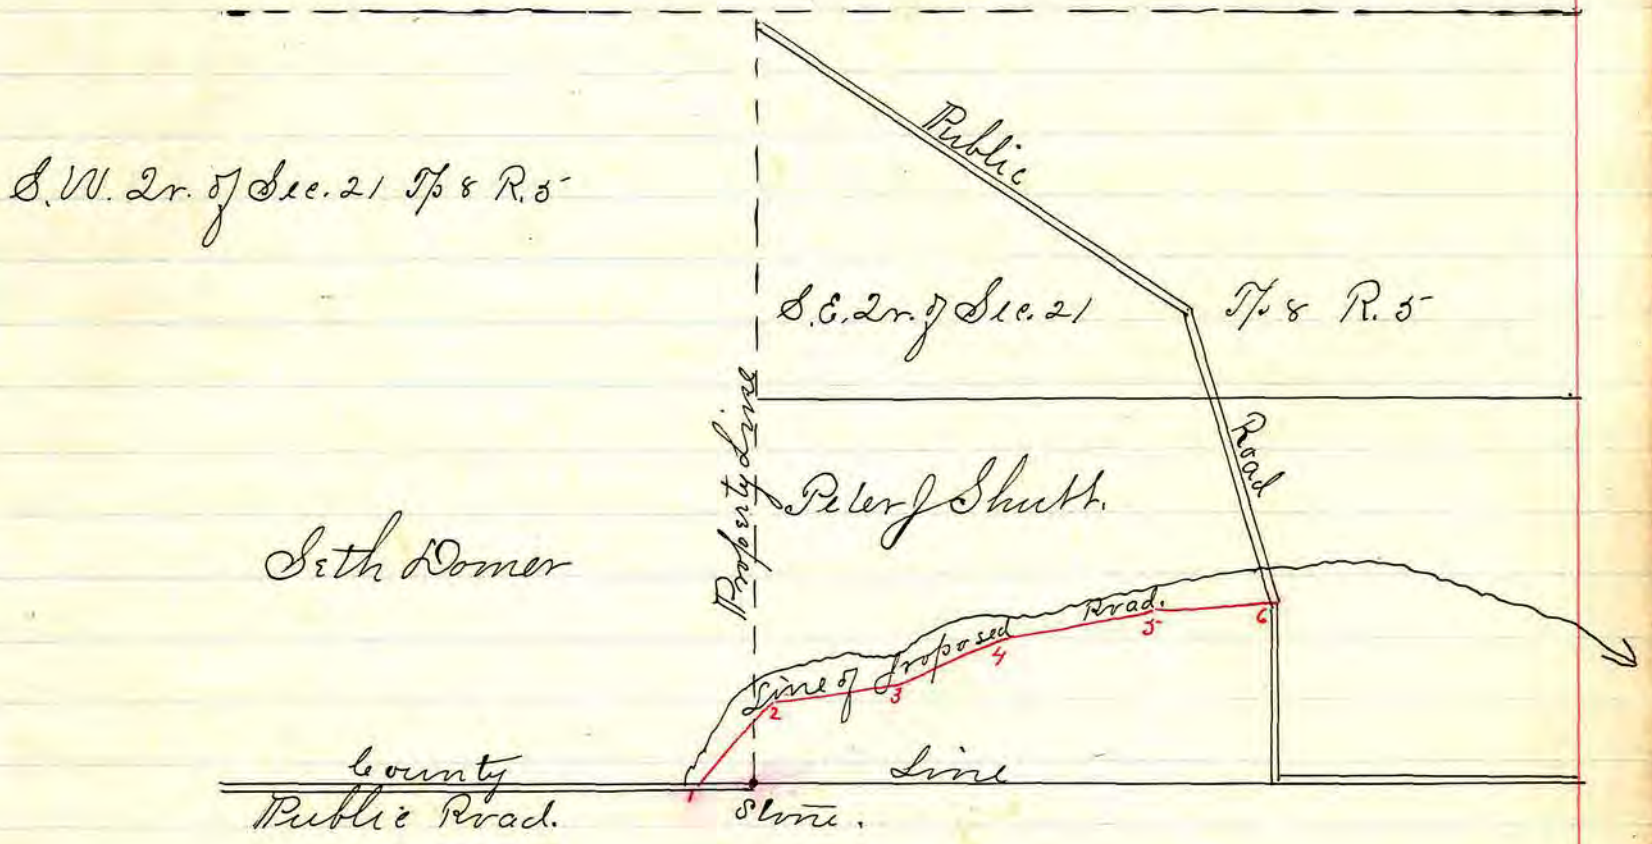 Public
S.W. Qr. of Sec. 21 Tp 8 R. 5
S.E. Qr. of Sec. 21 Tp 8 R. 5
Property Line
Road
Peter J Shutt.
Seth Domer
Line of proposed Road.
1
2
3
4
5
6
County Line
Public Road.
Stone.